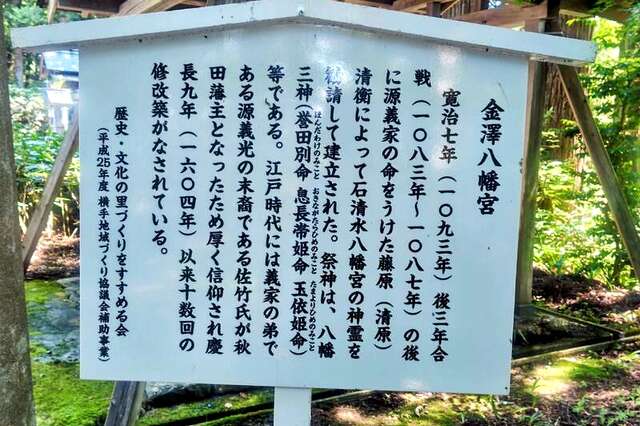 金澤八幡宮
寛治七年（一〇九三年）後三年合
戦（一〇八三年～一〇八七年）の後
に源義家の命をうけた藤原（清原）
清衡によって石清水八幡宮の神霊を
勧請して建立された。祭神は、八幡
三神（誉田別命 息長帯姫命 玉依姫命）
ほんだわけのみこと おきながたらひめのみこと たまよりひめのみこと
等である。江戸時代には義家の弟で
ある源義光の末裔である佐竹氏が秋
田藩主となったため厚く信仰され慶
長九年（一六〇四年）以来十数回の
修改築がなされている。
歴史・文化の里づくりをすすめる会
（平成25年度 横手地域づくり協議会補助事業）